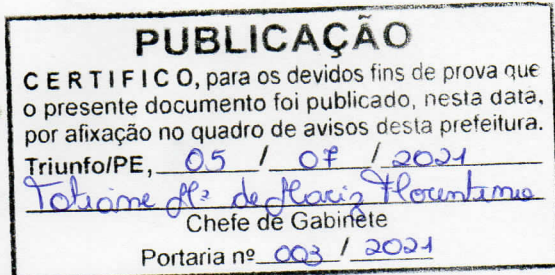 PUBLICAÇÃO
CERTIFICO, para os devidos fins de prova que
o presente documento foi publicado, nesta data,
por afixação no quadro de avisos desta prefeitura.
Triunfo/PE, 05 / 07 / 2021
Tatiane Mª de Mariz Florentino
Chefe de Gabinete
Portaria nº 003 / 2021